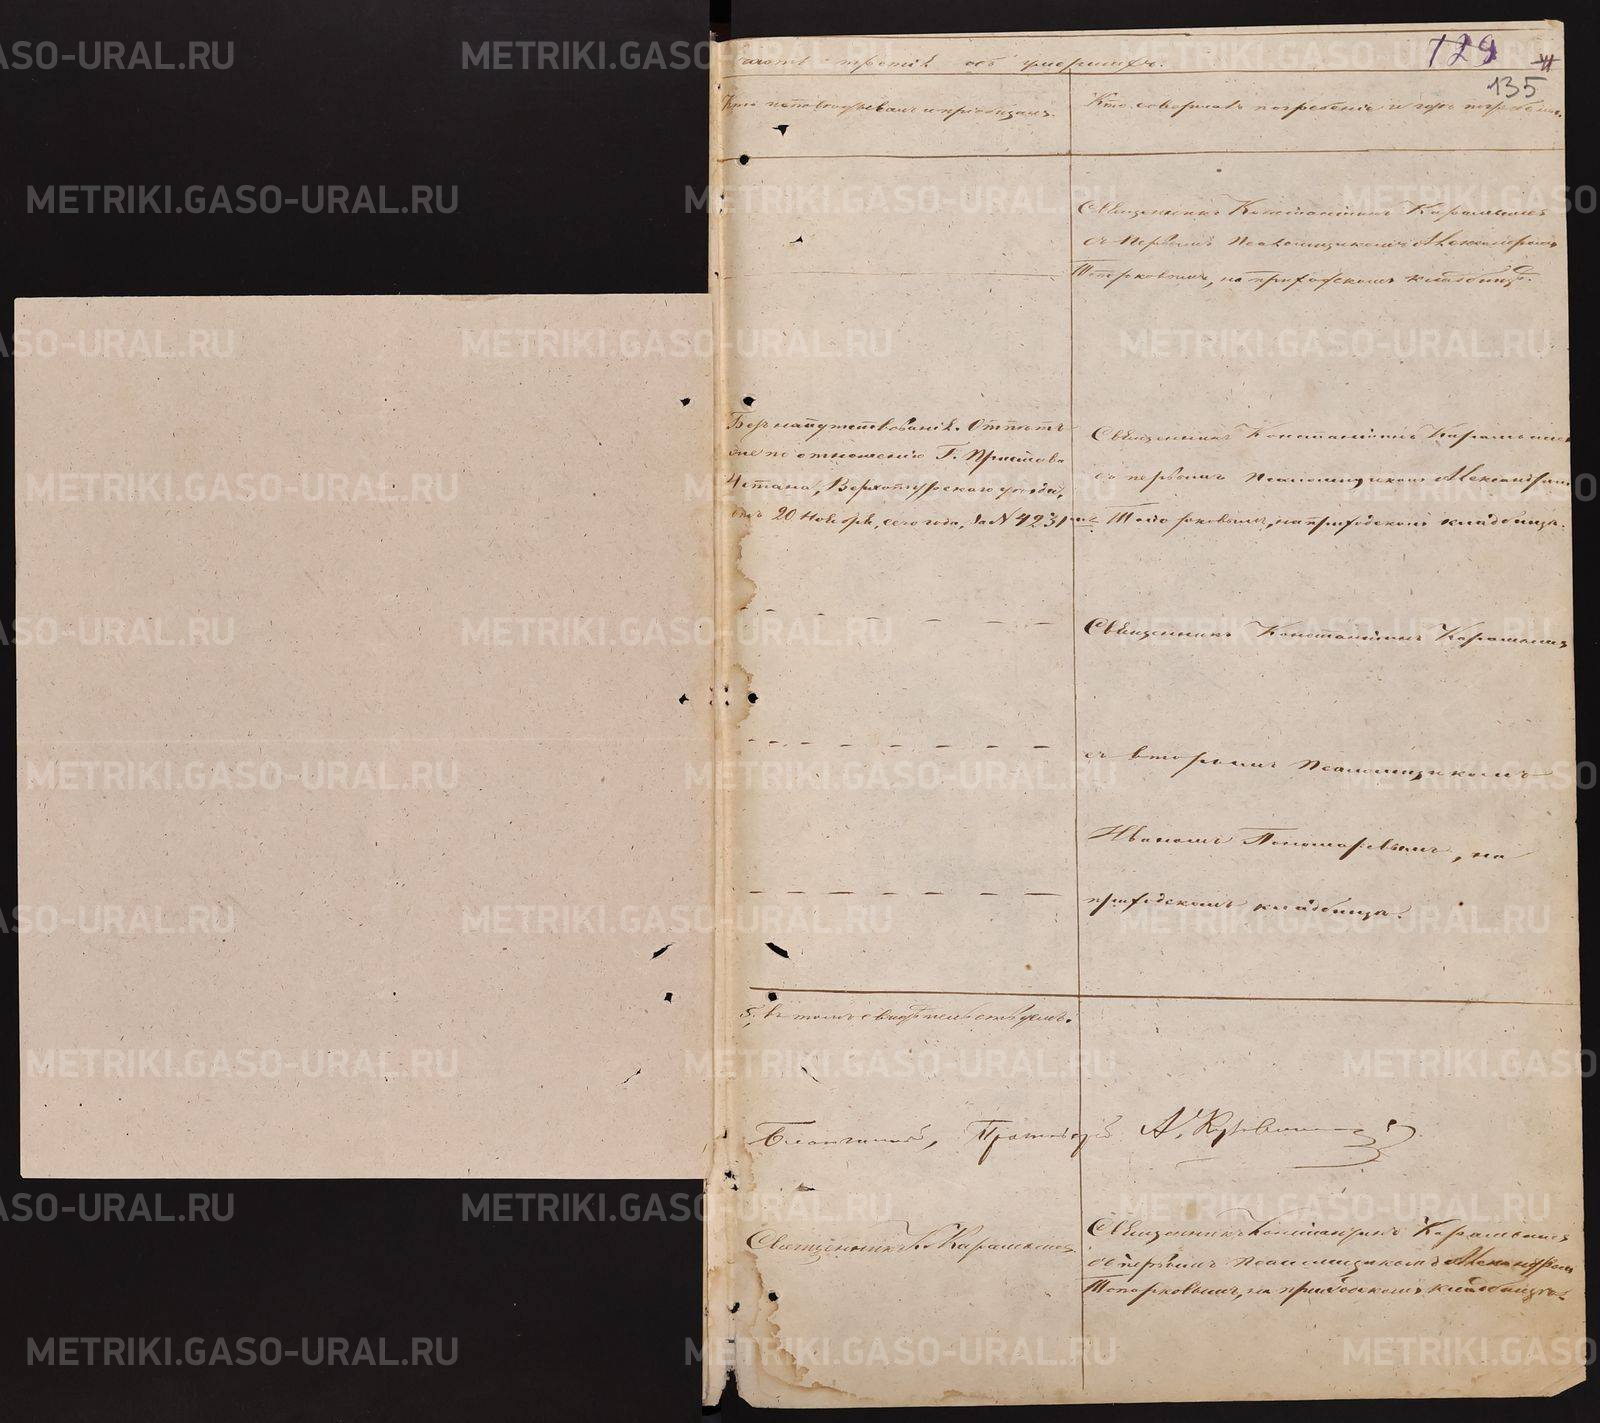 129
135
часть третія объ умершихъ.
Кто исповѣдывалъ и пріобщалъ.
Кто совершалъ погребеніе и гдѣ погребены.
Священникъ Константинъ
съ первымъ Псаломщикомъ Александромъ
Топорковымъ, на приходскомъ кладбищѣ.
Безъ напутствованія. Отпѣтъ
по отношенію Г. Пристава
4 стана, Верхотурскаго уѣзда,
отъ 20 Ноября, сего года, за № 4231
Священникъ Константинъ
съ первымъ Псаломщикомъ Александромъ
Топорковымъ, на приходскомъ кладбищѣ.
Священникъ Константинъ
съ вторымъ Псаломщикомъ
Иваномъ Пономаревымъ, на
приходскомъ кладбищѣ.
въ томъ свидѣтельствуемъ.
Благочинный, Протоіерей А.
Священникъ К.
Священникъ Константинъ
съ первымъ Псаломщикомъ Александромъ
Топорковымъ, на приходскомъ кладбищѣ.
METRIKI.GASO-URAL.RU